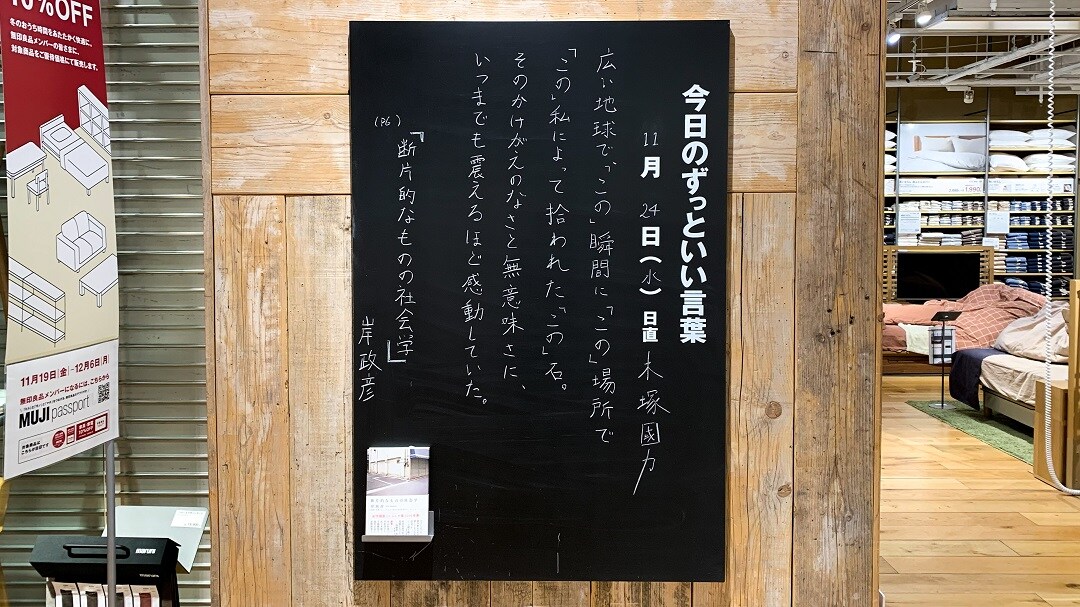 今日のずっといい言葉
11月24日(水)日直 木塚國力
広い地球で、「この」瞬間に「この」場所で
「この」私によって拾われた「この」石。
そのかけがえのなさと無意味さに、
いつまでも震えるほど感動していた。
(P6)
『断片的なものの社会学』
岸政彦
10%OFF
冬のおうち時間をあたたかく快適に。
無印良品メンバーの皆さまに、
対象商品をご優待価格にて販売します。
11月19日|金|-12月6日|月|
無印良品メンバーになるには、こちらから
MUJI passport
対象商品は
こちらが目印です
10%OFF
1,990